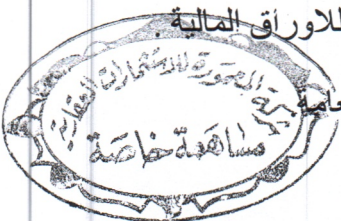 للاوراق المالية .
شركة المعمورة للاستثمارات العقارية
مساهمة خاصة